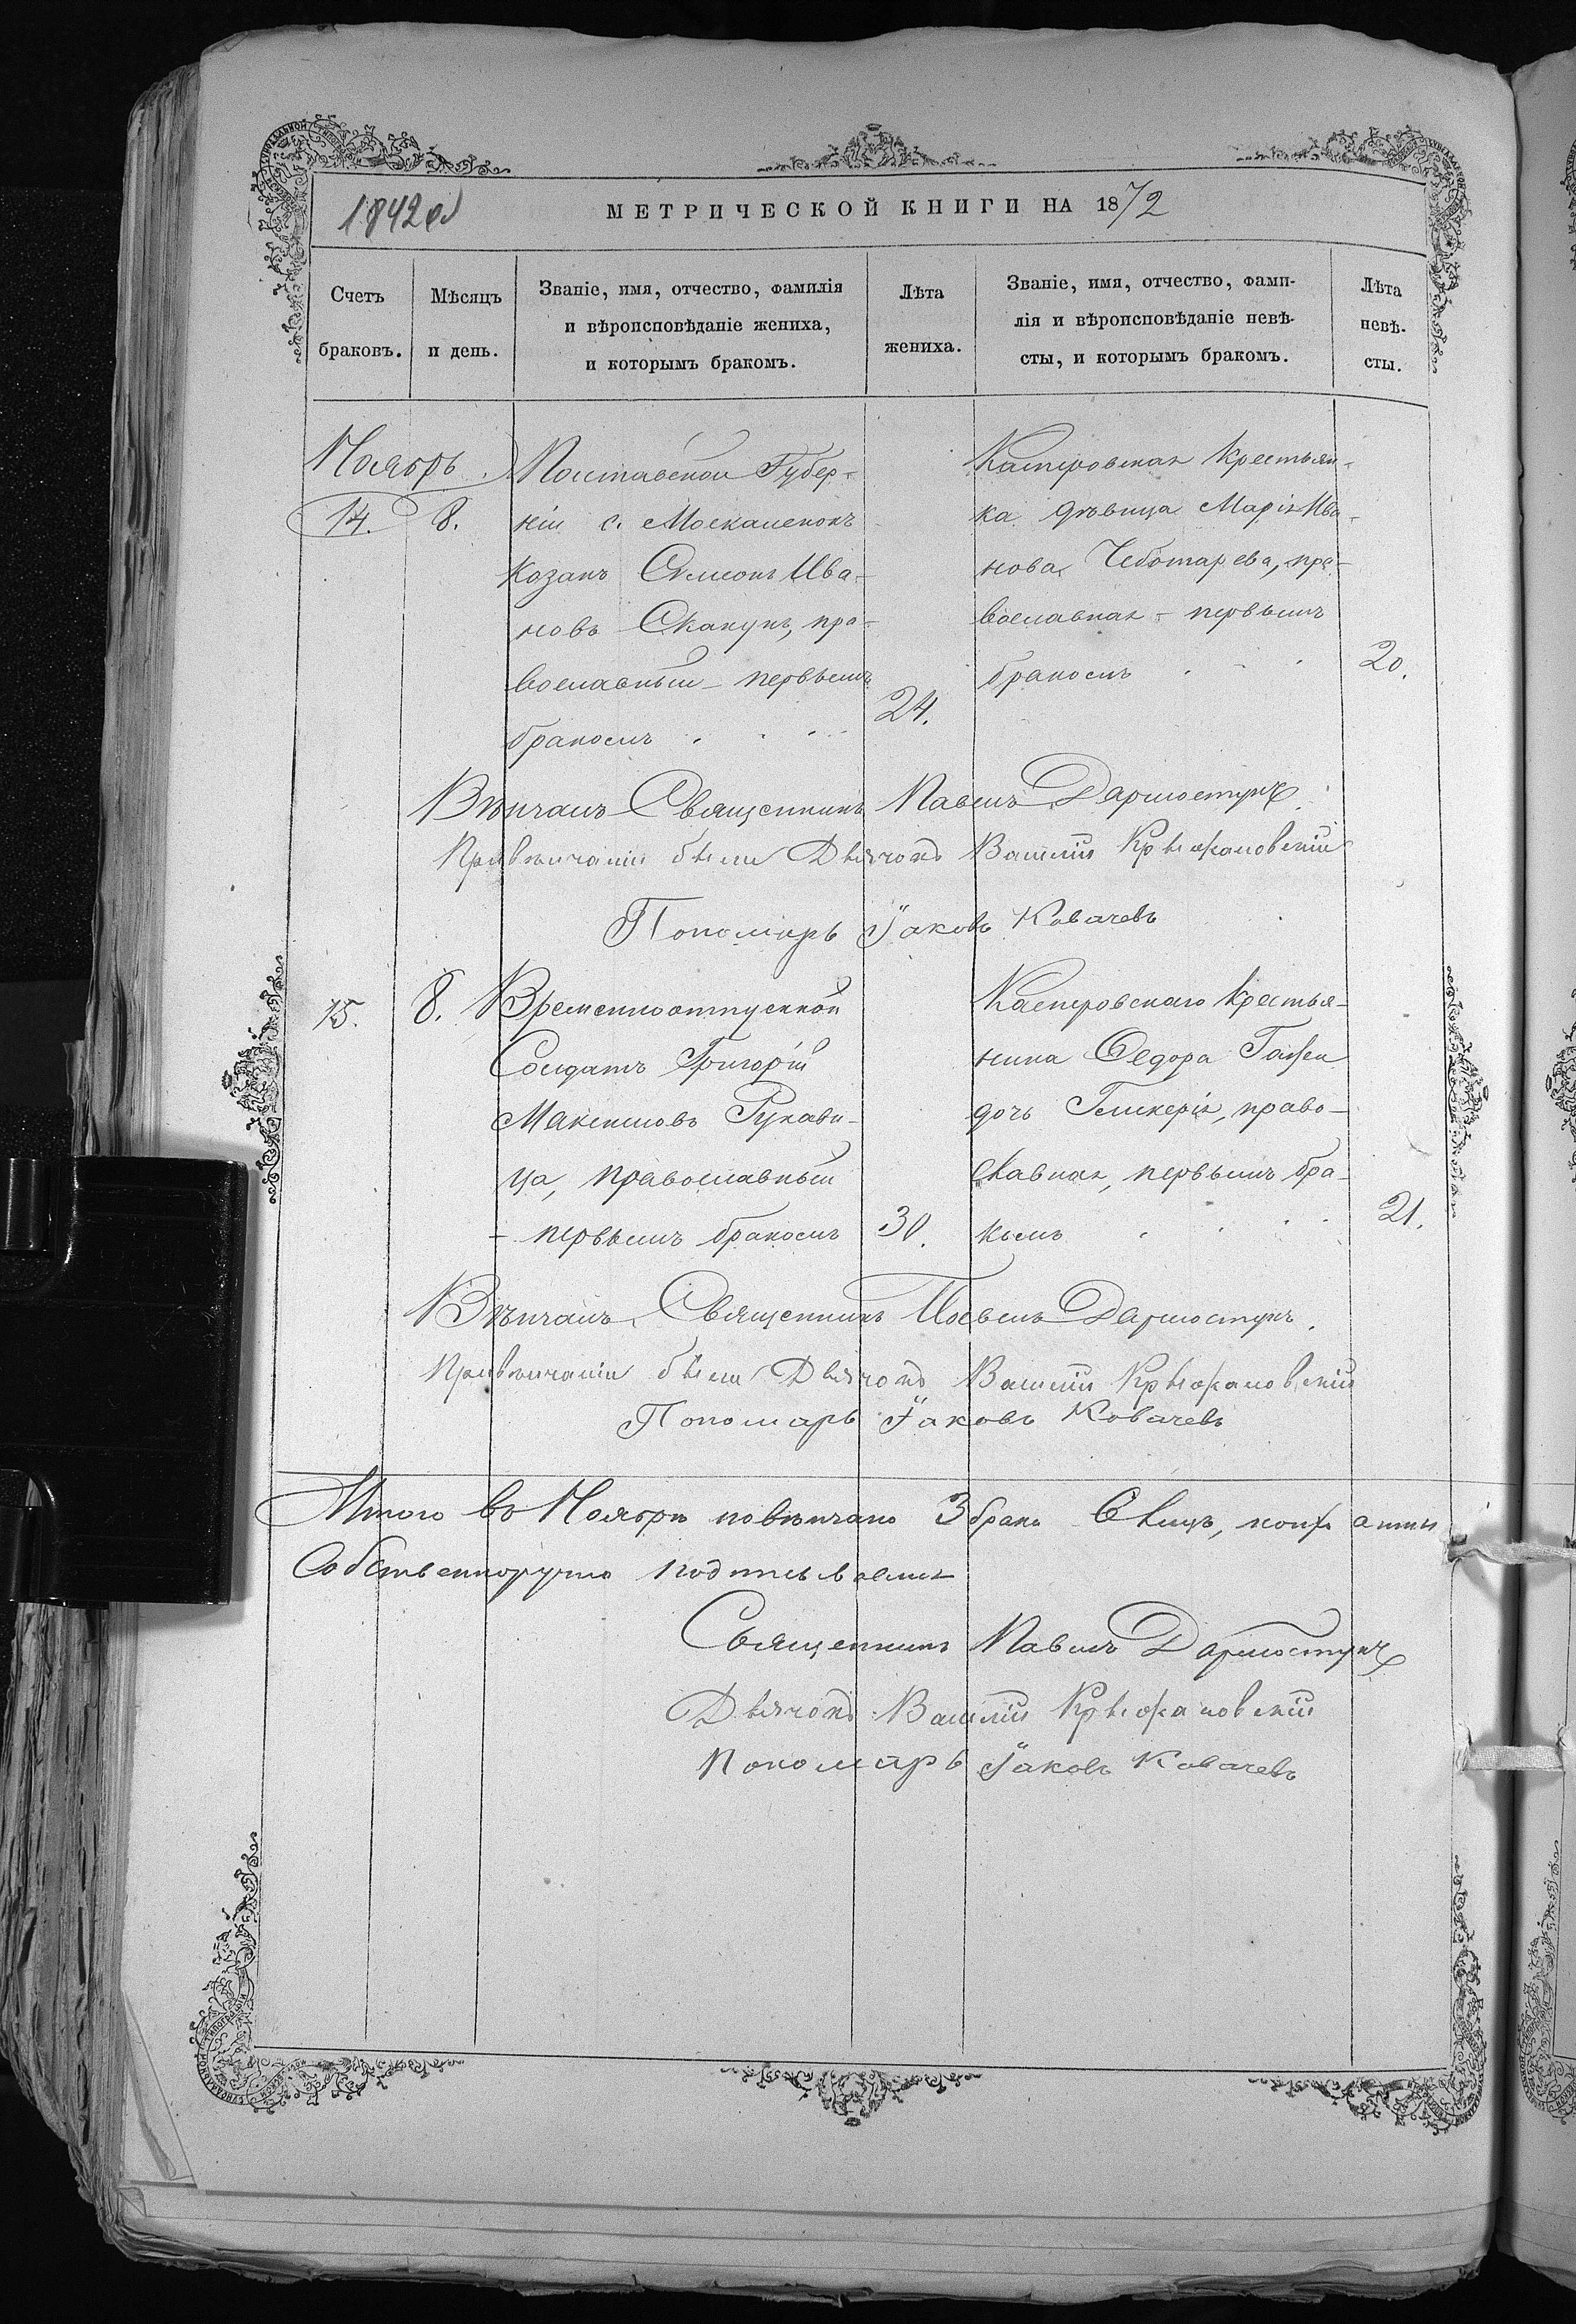 1842об
МЕТРИЧЕСКОЙ КНИГИ НА 1872
Счетъ браковъ.
Мѣсяцъ и день.
Званіе, имя, отчество, фамилія
и вѣроисповѣданіе жениха,
и которымъ бракомъ.
Лѣта жениха.
Званіе, имя, отчество, фами-
лія и вѣроисповѣданіе невѣ-
сты, и которымъ бракомъ.
Лѣта невѣ-
сты.
Ноябрь.
14. 8.
Полтавской Губер-
ніи с. Москаленокъ
козакъ Симеонъ Ива-
новъ Скакунъ, пра-
вославный – первымъ
бракомъ . . . .
24.
Касперовская крестьян-
ка дѣвица Марія Ива-
нова Чеботарева, пра-
вославная – первымъ
бракомъ . . .
20.
Вѣнчалъ Священникъ Павелъ Дармостукъ.
При вѣнчаніи были Дьячокъ Василій Крыжановскій
Пономарь Іаковъ Ковачевъ
15. 8.
Временноотпускной
Солдатъ Григорій
Максимовъ Рукави-
ца, православный
– первымъ бракомъ
30.
Касперовскаго крестья-
нина Ѳедора
дочь Гликерія, право-
славная, первымъ бра-
комъ . . . .
21.
Вѣнчалъ Священникъ Павелъ Дармостукъ.
При вѣнчаніи были Дьячокъ Василій Крыжановскій
Пономарь Іаковъ Ковачевъ
Итого въ Ноябрѣ повѣнчано 3 брака 6 лицъ,
Собственноручно подписываемся
Священникъ Павелъ Дармостукъ
Дьячокъ Василій Крыжановскій
Пономарь Іаковъ Ковачевъ